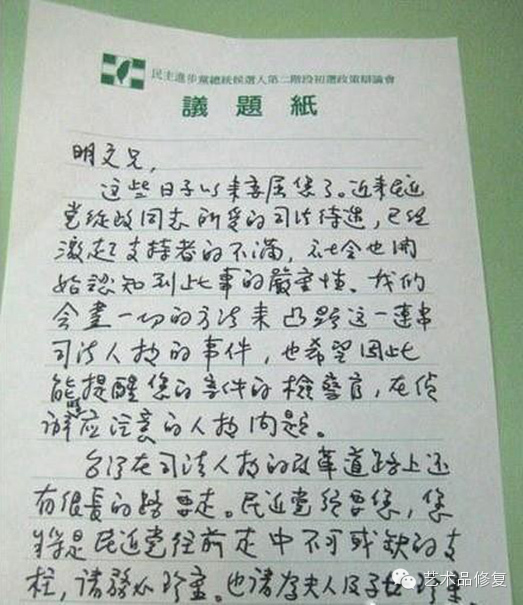 民主進步黨總統候選人第二階段初選政策辯論會
議題紙
明文兄,
這些日子以來委屈您了。近來民進
党從政同志所受的司法待遇,已經
激起支持者的不滿,社会也開
始認知到此事的嚴重性。我們
会盡一切的方法來凸顯這一連串
司法人权的事件,也希望因此
能提醒您的案件的檢察官,在偵
辦時應注意的人权问題。
台湾在司法人权的改革道路上还
有很長的路要走。民進党須要您,您
更是民進党往前走中不可或缺的支
柱,請務必珍重。也請尊夫人及子女珍重
艺术品修复